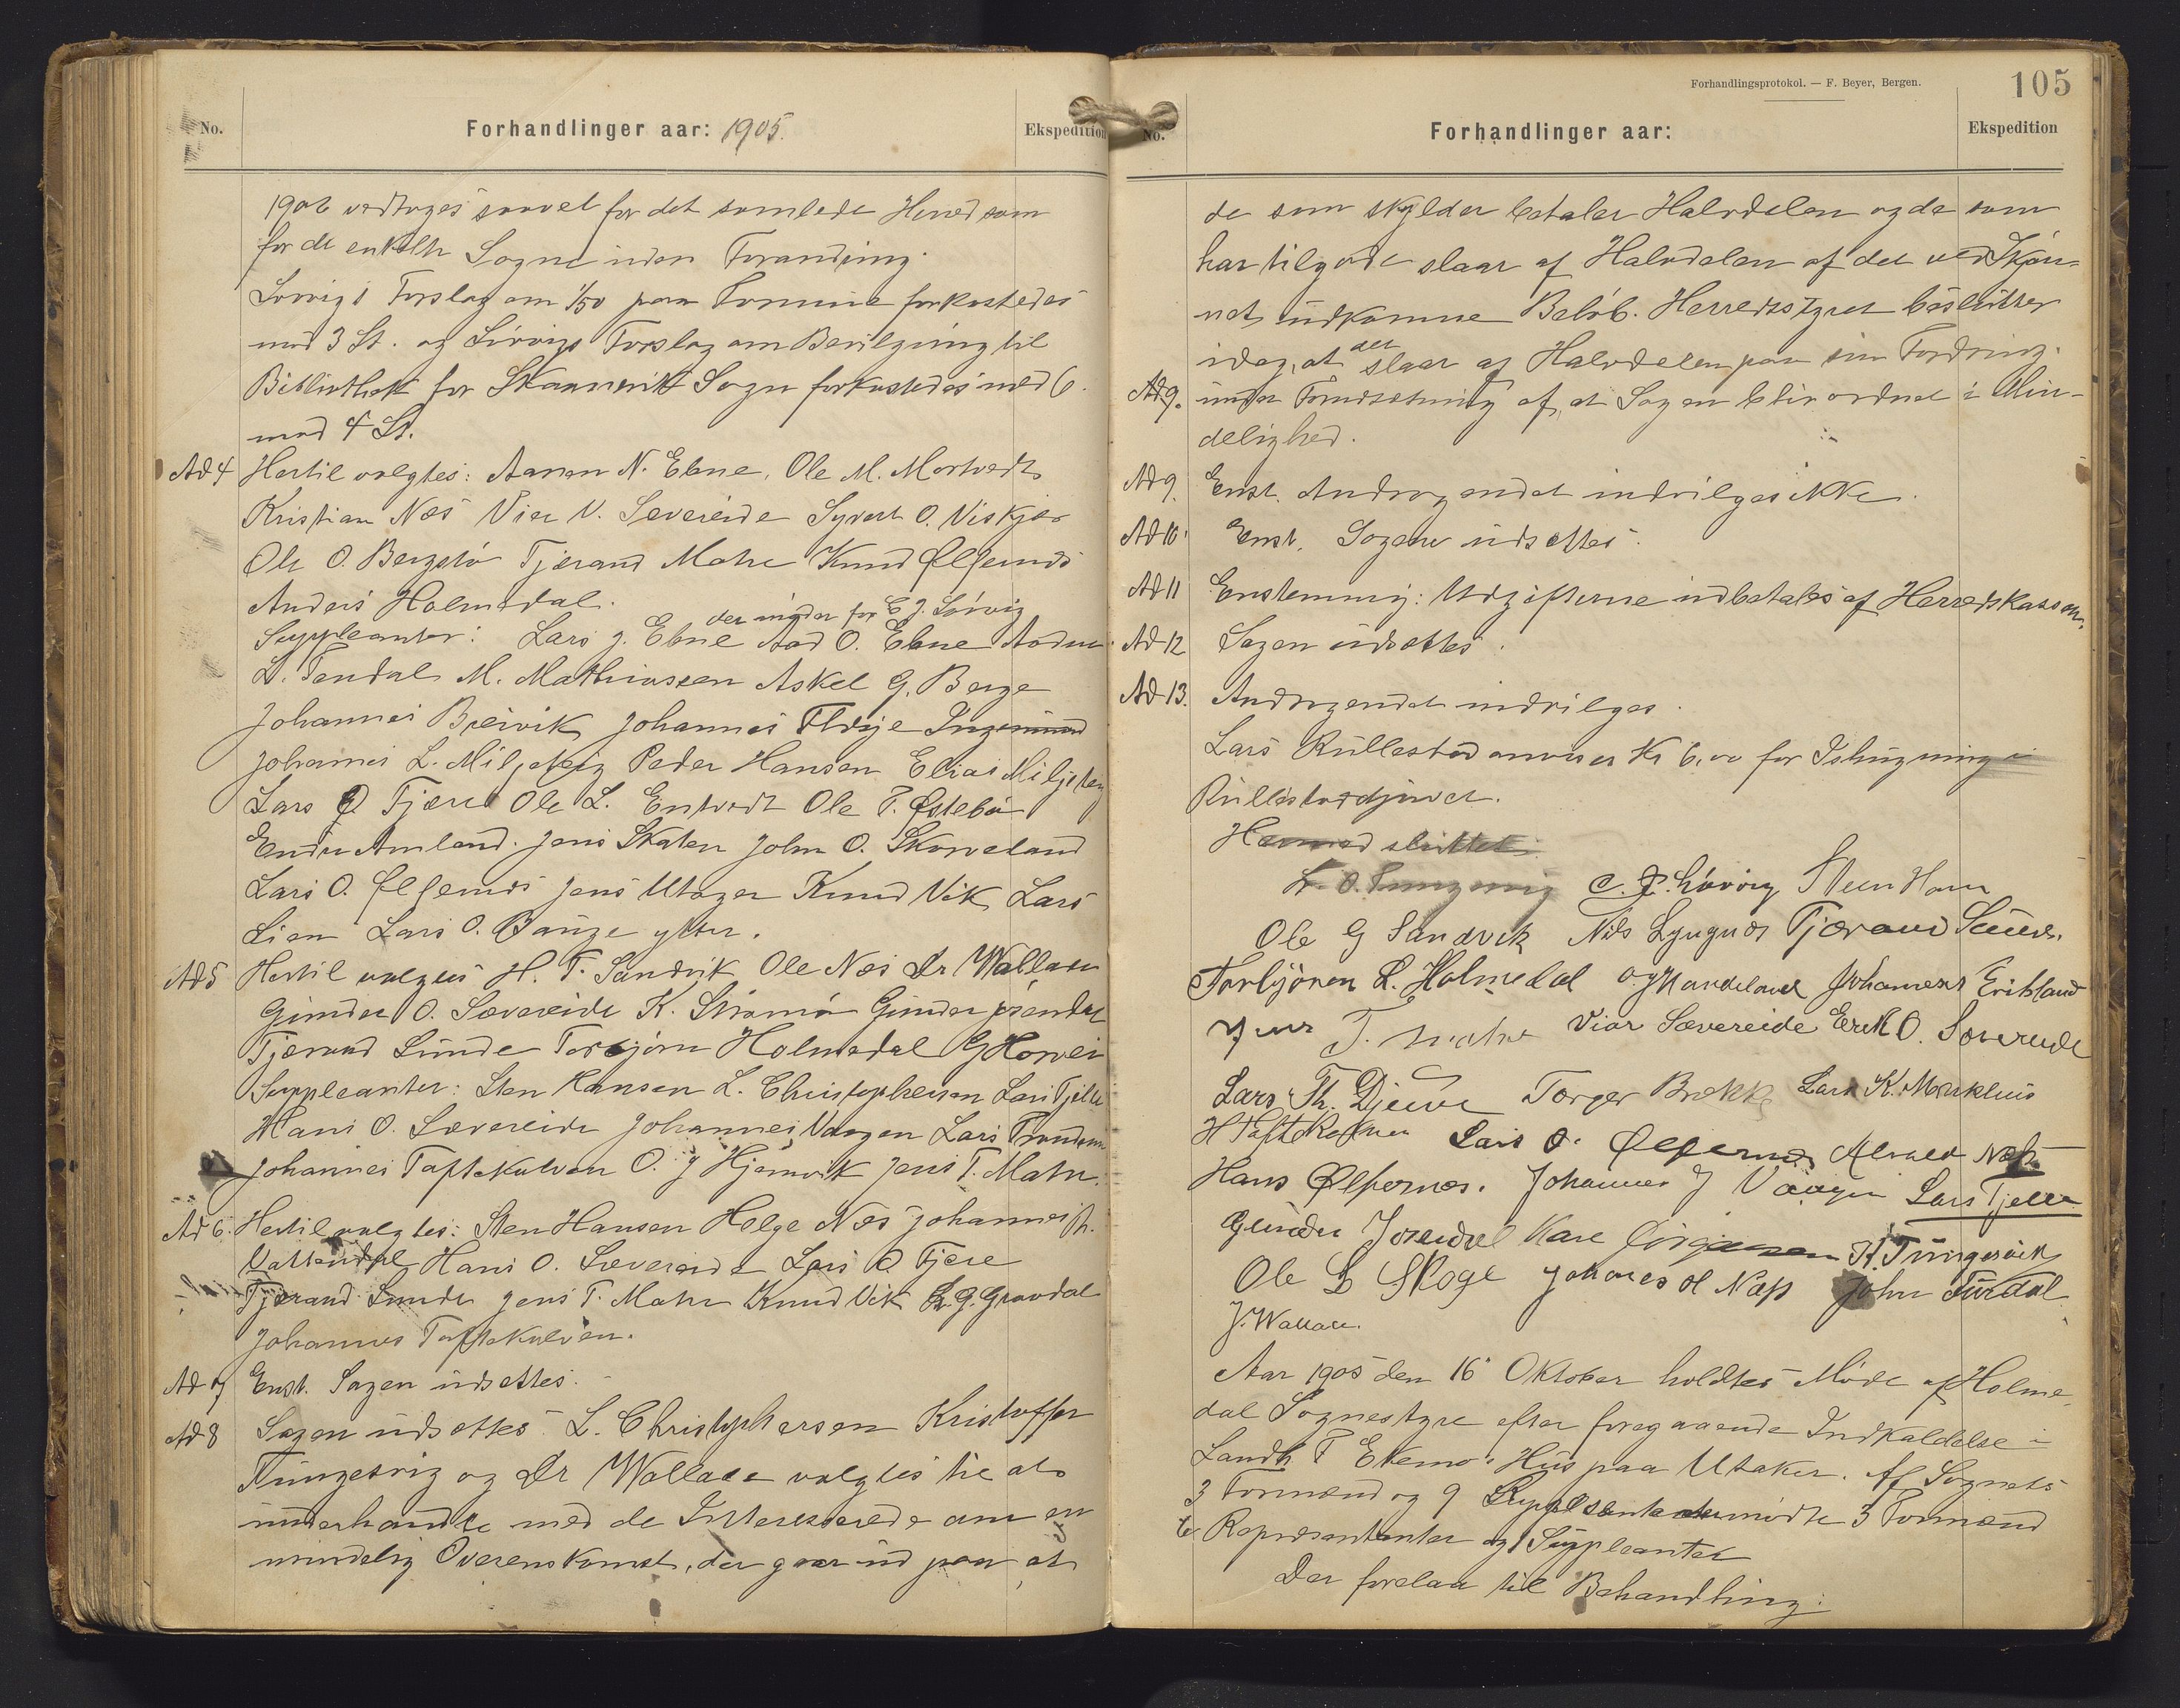 No.
Forhandlinger aar: 1905.
Ekspedition
1906 vedtoges saavel for det samlede Herred som
for de enkelte Sogne uden Forandring.
Lövvigs Forslag om 1/50 paa Formue forkastedes
mod 3 St. og Lövvigs Forslag om Bevilgning til
Bibliothek for Skaanevik Sogn forkastedes med 6
mod 4 St.
Ad 4 Hertil valgtes: Aanen N. Ebne, Ole M. Mortvedt
Kristian Næs Vier V. Sævereide Syvert O. Viskjær
Ole O. Bergstö Tjærand Matre Knud Ølfernæs
Anders Holmedal.
der möder for E J. Lövvig
Suppleanter: Lars J. Ebne Aad O. Ebne Aadne
L. Tendal M. Mathiassen Askel G. Berge
Johannes Breivik Johannes Fladje
Johannes L. Miljeteig Peder Hansen Elias Miljeteig
Lars O Tjære Ole L. Entvedt Ole P. Østebö
Endre Amland. Jens Skaten John O. Skorveland
Lars O. Ølfernæs Jens Utager Knud Vik Lars
Lien Lars O. Bauge ytter.
Ad 5 Hertil valgtes H. T. Sandvik Ole Næs Dr Wallace
Gunder O. Sævereide K. Strömö Gunder Jörendal
Tjærand Sunde Torbjörn Holmedal G Horvei
Suppleanter: Sten Hansen L. Christophersen Lars Tjelle
Hans O. Sævereide Johannes Vaagen Lars
Johannes Toftekalven O. J Hjemvik Jens T. Matre.
Ad 6. Hertil valgtes: Sten Hansen Helge Næs Johannes Ph.
Vattendal Hans O. Sævereide Lars O Tjere
Tjærand Sunde Jens T. Matre Knud Vik G. Gravdal
Johannes Toftekalven.
Ad 7 Enst. Sagen udsættes.
Ad 8 Sagen udsættes. L. Christophersen Kristoffer
Tungesvig og Dr Wallace valgtes til at
underhandle med de Interesserede om en
mindelig Overenskomst, der gaar ud paa at
Forhandlingsprotokol. — F. Beyer, Bergen.
105
No.
Forhandlinger aar:
Ekspedition
de som skylder betaler Halvdelen og de som
har tilgode slaar af Halvdelen af det ved Skjön-
net udkomne Belöb. Herredsstyret beslutter
idag, at det slaar af Halvdelen paa sin Fordring.
Ad 9. under Forudsætning af, at Sagen blir ordnet i Min-
delighed.
Ad 9. Enst. Andragendet indvilges ikke.
Ad 10. Enst. Sagen udsættes.
Ad 11 Enstemmig: Udgifterne udbetales af Herredskassen.
Ad 12 Sagen udsættes.
Ad 13. Andragendet indvilges.
Lars Rullestad anvises Kr 6,00 for Ishugning i
Rullestadjuvet.
Hermed sluttet
K. O. Tungesvig E. J. Lövvig Steen Hansen
Ole G Sandvik Nils Lyngnæs Tjærand Sunde.
Torbjörn L. Holmedal O J Handeland Johannes Eriksland
Jens T. Matre Viar Sævereide Erik O. Sævereide
Lars Th. Djuve Torger Brekke Lars K. Markhus
H Toftekalven Lars O. Ølfernæs Alvald Næss
Hans Ølfernæs. Johannes J Vaagen Lars Tjelle
Gunder Jörendal Kare Jörgensen K. Tungesvik
Ole L Skoge Johanes H Næss John Furdal
J. Wallace.
Aar 1905 den 16' Oktober holdtes Möde af Holme-
dal Sognestyre efter foregaaende Indkaldelse i
Landh. P Ekemo's Hus paa Utaker. Af Sognets
3 Formænd og 9 mödte 3 Formænd
6 Repræsentanter og 1 Suppleanter
Der forelaa til Behandling: